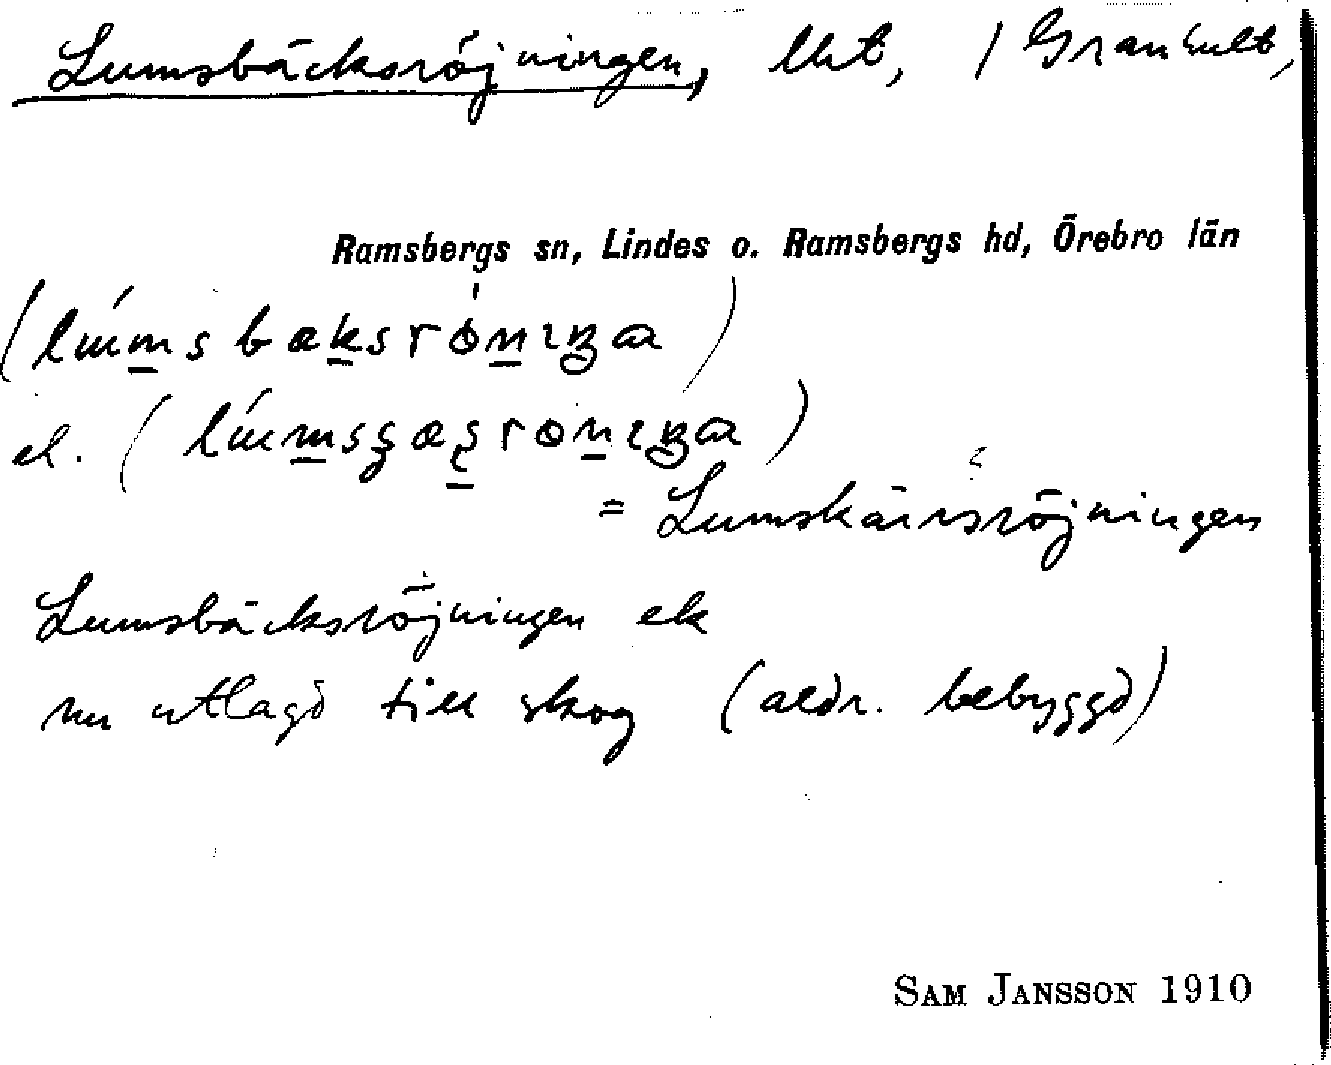 Lumsbäcksröjningen, lht, / Granhult,
Ramsbergs sn, Lindes o. Ramsbergs hd, Örebro län
el.
= Lumskärrsröjningen
Lumsbäcksröjningen ek
nu utlagd till skog (aldr. bebyggd)
SAM JANSSON 1910